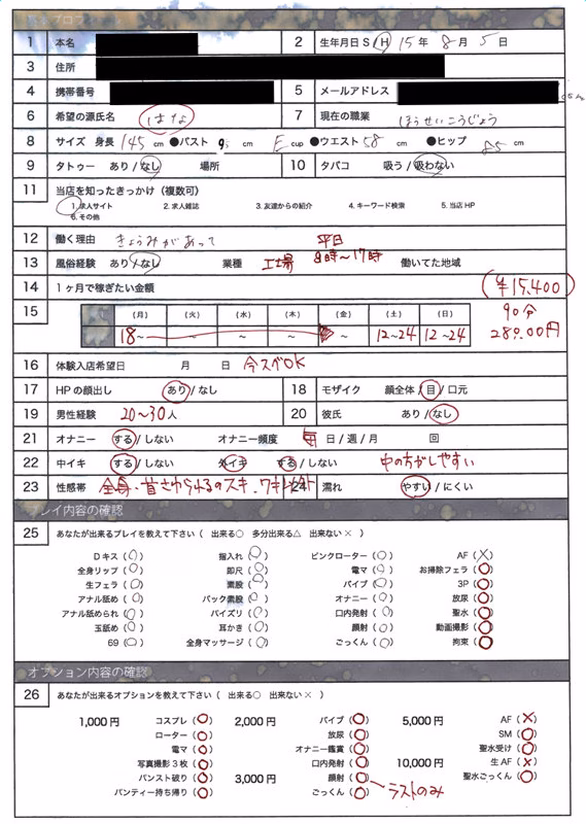 1 本名 2 生年月日 S / H 15年 8月 5日
3 住所
4 携帯番号 5 メールアドレス
6 希望の源氏名 はな 7 現在の職業 ほうせいこうじょう
8 サイズ 身長 145 cm ●バスト cm E cup ●ウエスト 58 cm ●ヒップ 85 cm
9 タトゥー あり / なし 場所 10 タバコ 吸う / 吸わない
11 当店を知ったきっかけ（複数可）
1.求人サイト 2. 求人雑誌 3. 友達からの紹介 4. キーワード検索 5. 当店 HP
6. その他
12 働く理由 きょうみがあって 平日
13 風俗経験 あり / なし 業種 工場 8時〜17時 働いてた地域
14 1ヶ月で稼ぎたい金額 (¥15,400)
90分
28000円
15 (月) (火) (水) (木) (金) (土) (日)
18〜 〜 〜 〜 〜 12〜24 12〜24
16 体験入店希望日 月 日 今スベOK
17 HPの顔出し あり / なし 18 モザイク 顔全体 / 目 / 口元
19 男性経験 20〜30人 20 彼氏 あり / なし
21 オナニー する / しない オナニー頻度 毎 日 / 週 / 月 回
22 中イキ する / しない 外イキ する / しない 中の方がしやすい
23 性感帯 全身・首さわられるのスキ、 24 濡れ やすい / にくい
プレイ内容の確認
25 あなたが出来るプレイを教えて下さい（ 出来る○ 多分出来る△ 出来ない× ）
Dキス（○） 指入れ（○） ピンクローター（○） AF（×）
全身リップ（○） 即尺（○） 電マ（○） お掃除フェラ（○）
生フェラ（○） 素股（○） バイブ（○） 3P（○）
アナル舐め（○） バック素股（○） オナニー（○） 放尿（○）
アナル舐められ（○） パイズリ（○） 口内発射（○） 聖水（○）
玉舐め（○） 耳かき（○） 顔射（○） 動画撮影（○）
69（○） 全身マッサージ（○） ごっくん（○） 拘束（○）
オプション内容の確認
26 あなたが出来るオプションを教えて下さい（ 出来る○ 出来ない× ）
1,000円 コスプレ（○） 2,000円 バイブ（○） 5,000円 AF（×）
ローター（○） 放尿（○） SM（○）
電マ（○） オナニー鑑賞（○） 聖水受け（○）
写真撮影3枚（○） 口内発射（○） 10,000円 生AF（×）
パンスト破り（○） 3,000円 顔射（○） 聖水ごっくん（○）
パンティー持ち帰り（○） ごっくん（○） ラストのみ